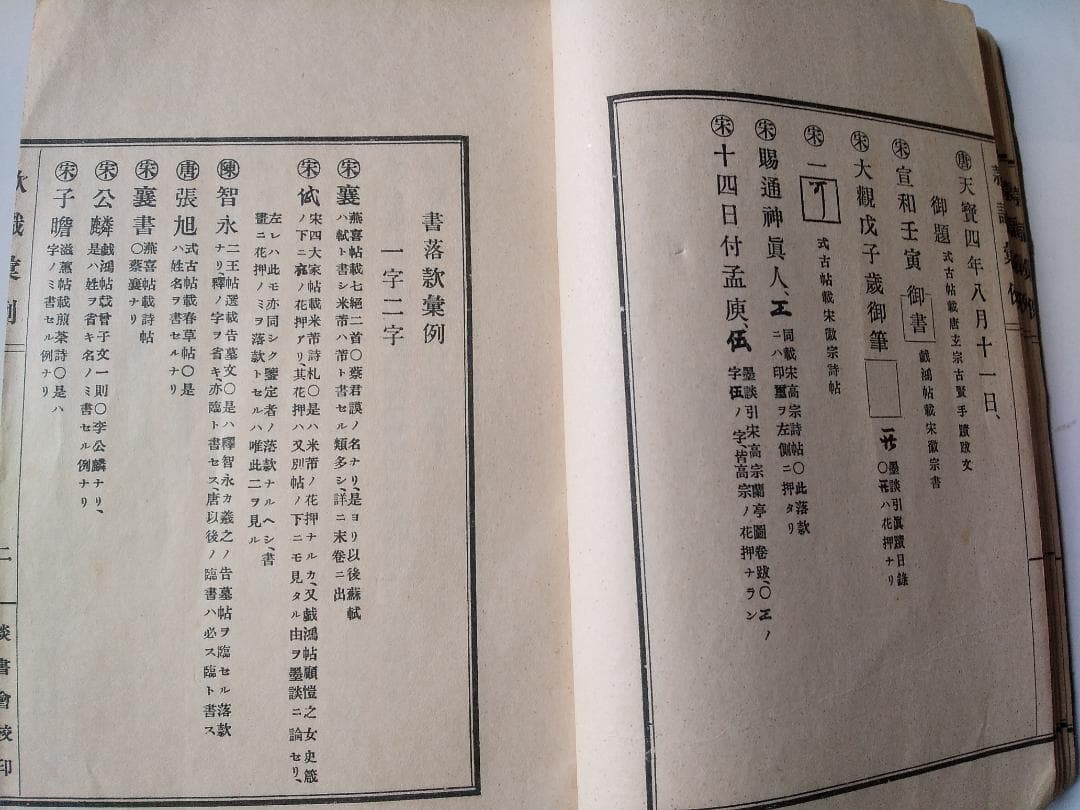 唐 天寳四年八月十一日、
御題 式古帖載唐玄宗古賢手蹟跋文
宋 宣和壬寅 御書 戯鴻帖載宋徽宗書
宋 大觀戊子歳御筆 墨談引眞蹟日錄
〇 ハ花押ナリ
宋 一 式古帖載宋徽宗詩帖
宋 賜通神眞人、 同載宋高宗詩帖〇此落款
ニハ印璽ヲ左側ニ押タリ
宋 十四日付孟庾、 墨談引宋高宗蘭亭圖卷跋、〇 ノ
字 ノ字、皆高宗ノ花押ナラン
書落款彙例
一字二字
宋 襄 燕喜帖載七絕二首〇蔡君謨ノ名ナリ、是ヨリ以後蘇軾
ハ軾ト書シ米芾ハ芾ト書セル類多シ、詳ニ末卷ニ出
宋 宋四大家帖載米芾詩札〇是ハ米芾ノ花押ナルカ、又戯鴻帖顧愷之女史箴
ノ下ニ ノ花押アリ其花押ハ又別帖ノ下ニモ見タル由ヲ墨談ニ論セリ、
左レハ此モ亦同シク鑒定者ノ落款ナルヘシ、書
畫ニ花押ノミヲ落款トセルハ唯此二ヲ見ル
陳 智永 二王帖選載告墓文〇是ハ釋智永カ羲之ノ告墓帖ヲ臨セル落款
ナリ、釋ノ字ヲ省キ、亦臨ト書セス、唐以後ノ臨書ハ必ス臨ト書ス
唐 張旭 式古帖載春草帖〇是
ハ姓名ヲ書セルナリ
宋 襄書 燕喜帖載詩帖
〇蔡襄ナリ
宋 公麟 戯鴻帖載曾子文一則〇李公麟ナリ、
是ハ姓ヲ省キ名ノミ書セル例ナリ
宋 子瞻 滋蕙帖載煎茶詩〇是ハ
字ノミ書セル例ナリ
款識彙例
二
談書會校印